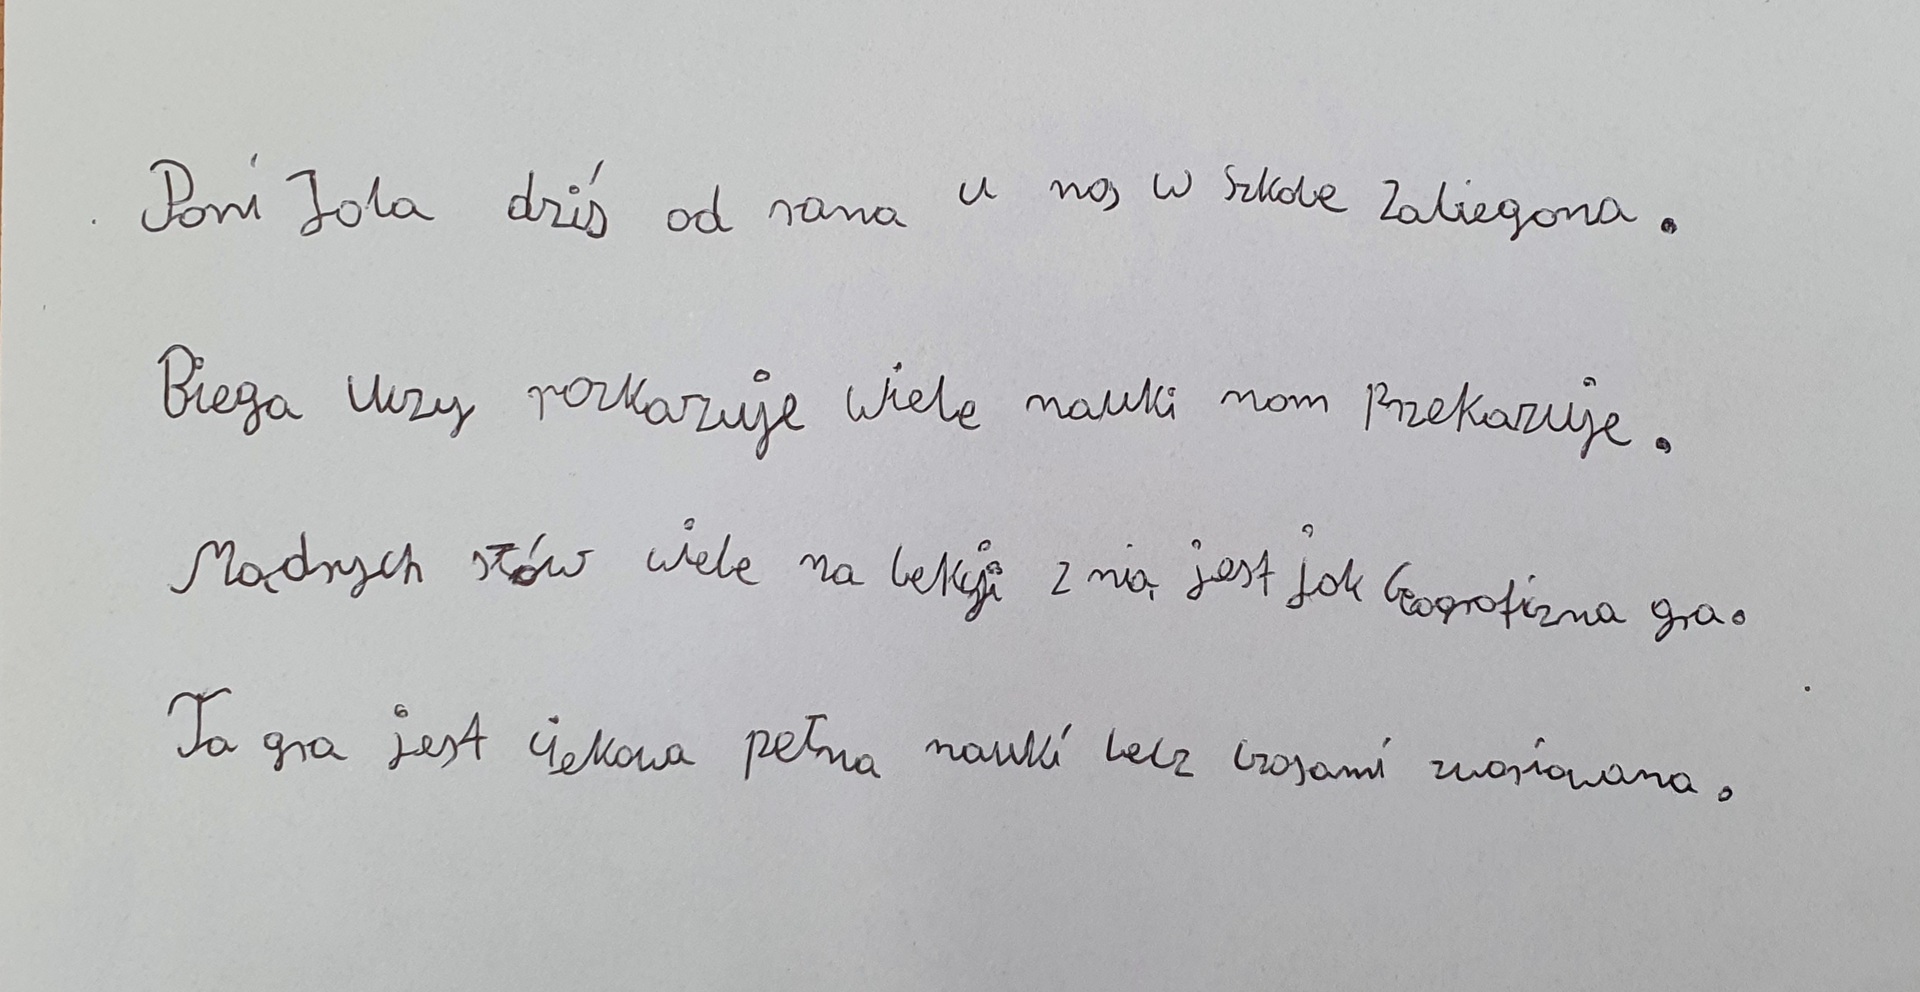 Pani Jola dziś od rana u nas w szkole Zabiegana.
Biega Uczy rozkazuje wiele nauki nam Przekazuje.
Mądrych słów wiele na lekcji z nią jest jak Geograficzna gra.
Ta gra jest ciekawa pełna nauki lecz czasami zwariowana.